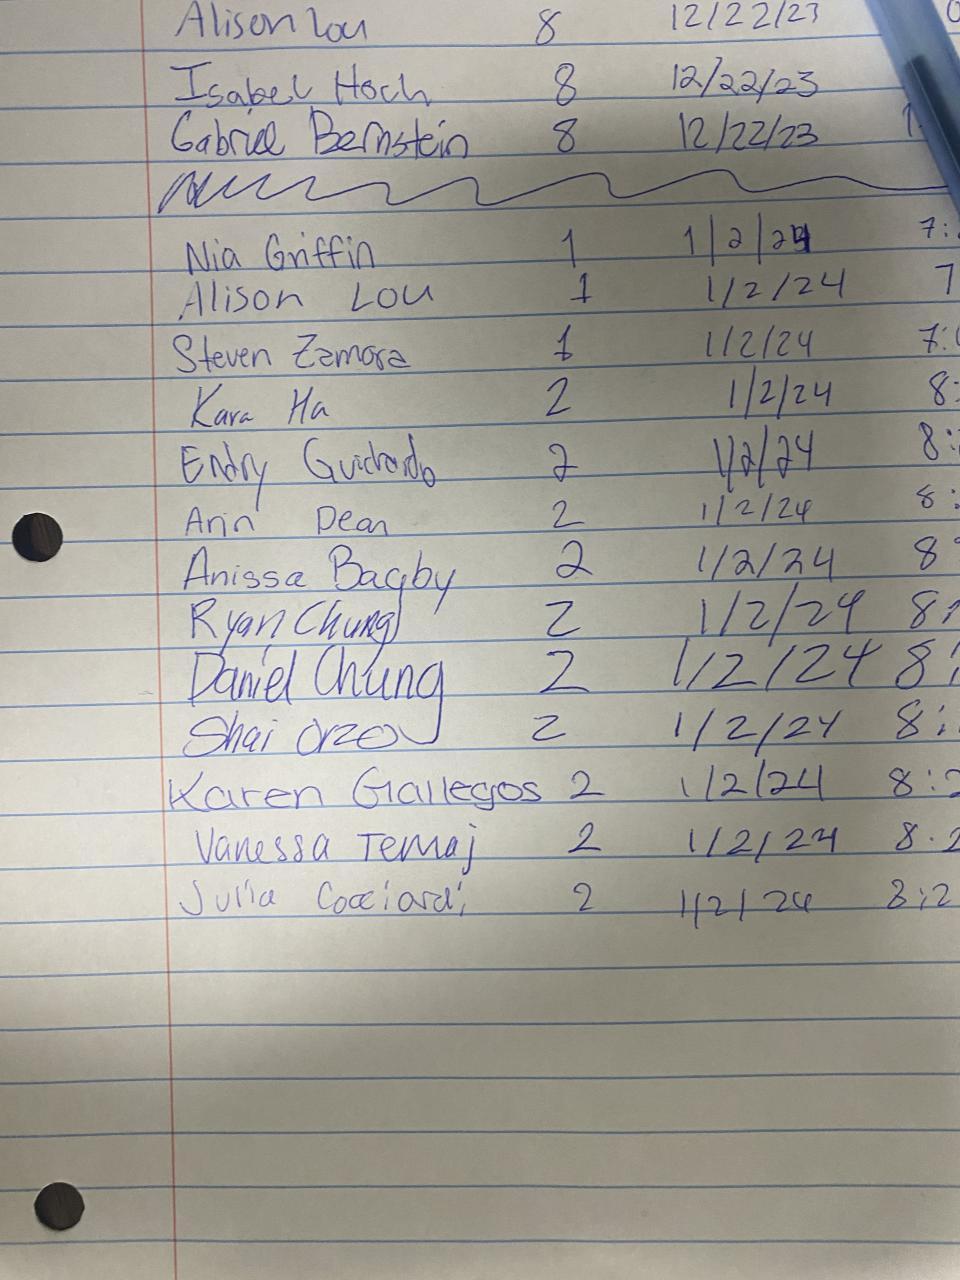 Alison Lou 8 12/22/23
Isabel Hoch 8 12/22/23
Gabriel Bernstein 8 12/22/23
Nia Griffin 1 1/2/24 7:
Alison Lou 1 1/2/24 7
Steven Zamora 1 1/2/24 7:
Kara Ha 2 1/2/24 8:
Endry Guichardo 2 1/2/24 8:
Arin Dean 2 1/2/24 8:
Anissa Bagby 2 1/2/24 8
Ryan Chung 2 1/2/24 8
Daniel Chung 2 1/2/24 8:
Shai Orzov 2 1/2/24 8:
Karen Gallegos 2 1/2/24 8:2
Vanessa Temaj 2 1/2/24 8.2
Julia Cocciardi 2 1/2/24 8:2